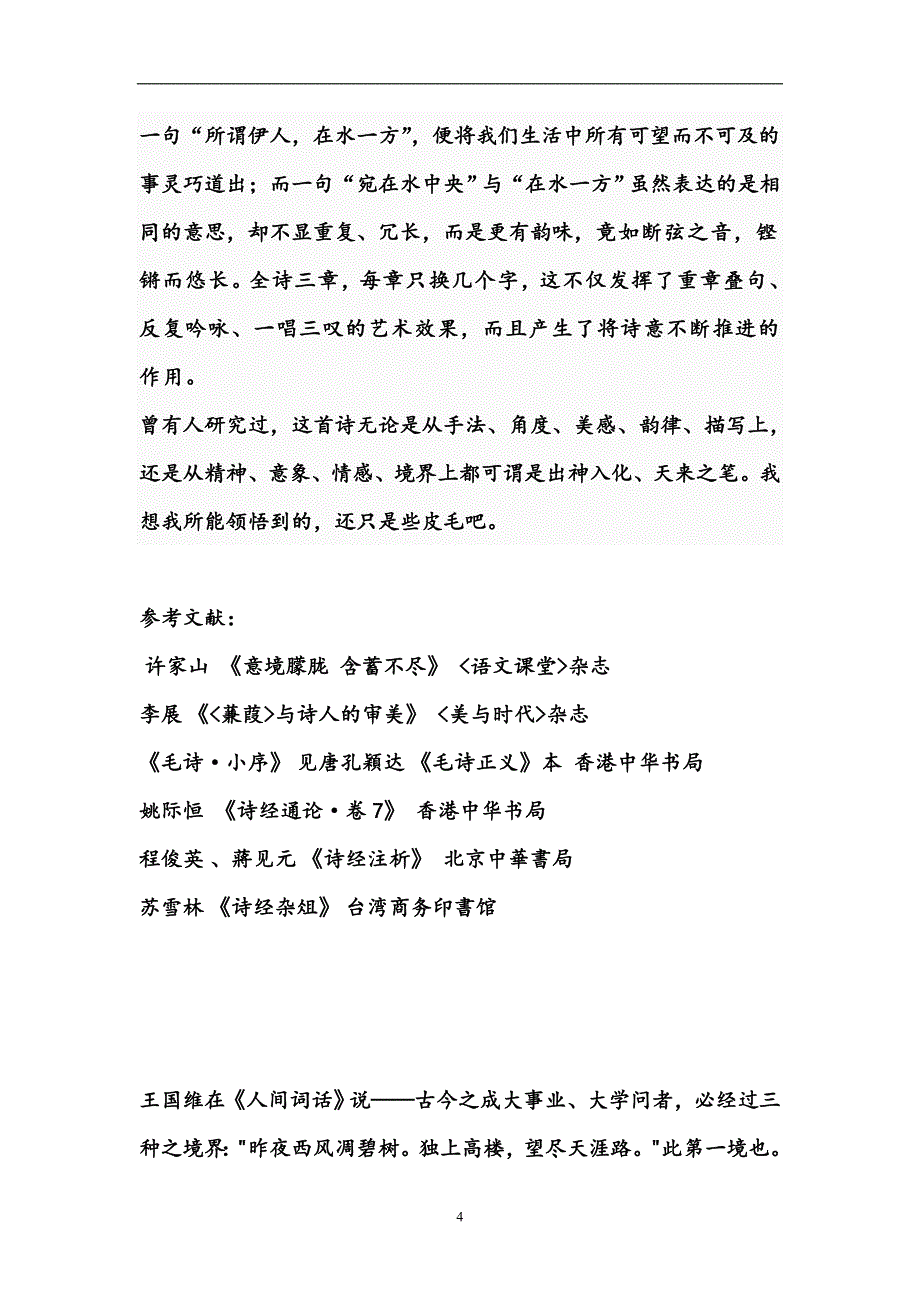 一句“所谓伊人，在水一方”，便将我们生活中所有可望而不可及的
事灵巧道出；而一句“宛在水中央”与“在水一方”虽然表达的是相
同的意思，却不显重复、冗长，而是更有韵味，竟如断弦之音，铿
锵而悠长。全诗三章，每章只换几个字，这不仅发挥了重章叠句、
反复吟咏、一唱三叹的艺术效果，而且产生了将诗意不断推进的
作用。
曾有人研究过，这首诗无论是从手法、角度、美感、韵律、描写上，
还是从精神、意象、情感、境界上都可谓是出神入化、天来之笔。我
想我所能领悟到的，还只是些皮毛吧。
参考文献：
许家山 《意境朦胧 含蓄不尽》 <语文课堂>杂志
李展 《<蒹葭>与诗人的审美》 <美与时代>杂志
《毛诗·小序》 见唐孔颖达 《毛诗正义》本 香港中华书局
姚际恒 《诗经通论·卷 7》 香港中华书局
程俊英 、蔣见元 《诗经注析》 北京中華書局
苏雪林 《诗经杂俎》 台湾商务印書馆
王国维在《人间词话》说——古今之成大事业、大学问者，必经过三
种之境界："昨夜西风凋碧树。独上高楼，望尽天涯路。"此第一境也。
4